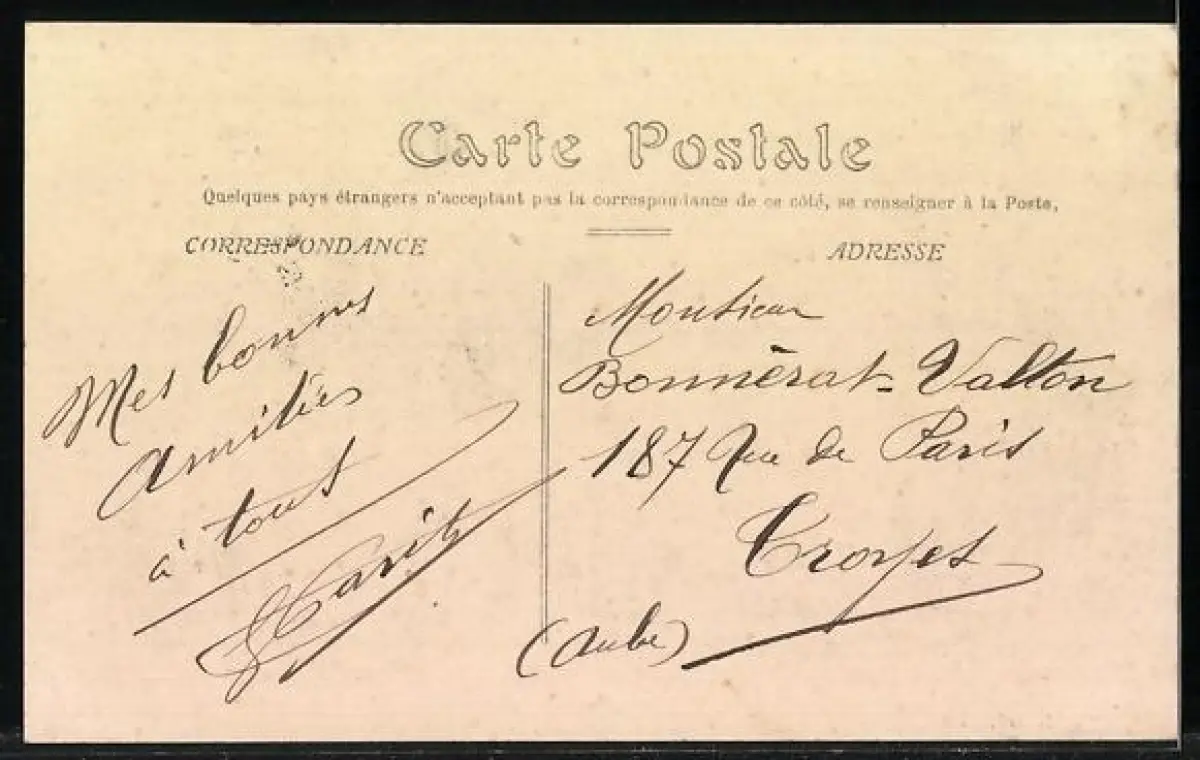 Carte Postale
Quelques pays étrangers n'acceptant pas la correspondance de ce côté, se renseigner à la Poste,
CORRESPONDANCE
ADRESSE
Mes bonnes
amitiés
à tous
Monsieur
Bonnérat-Valton
187 Rue de Paris
Troyes
(Aube)